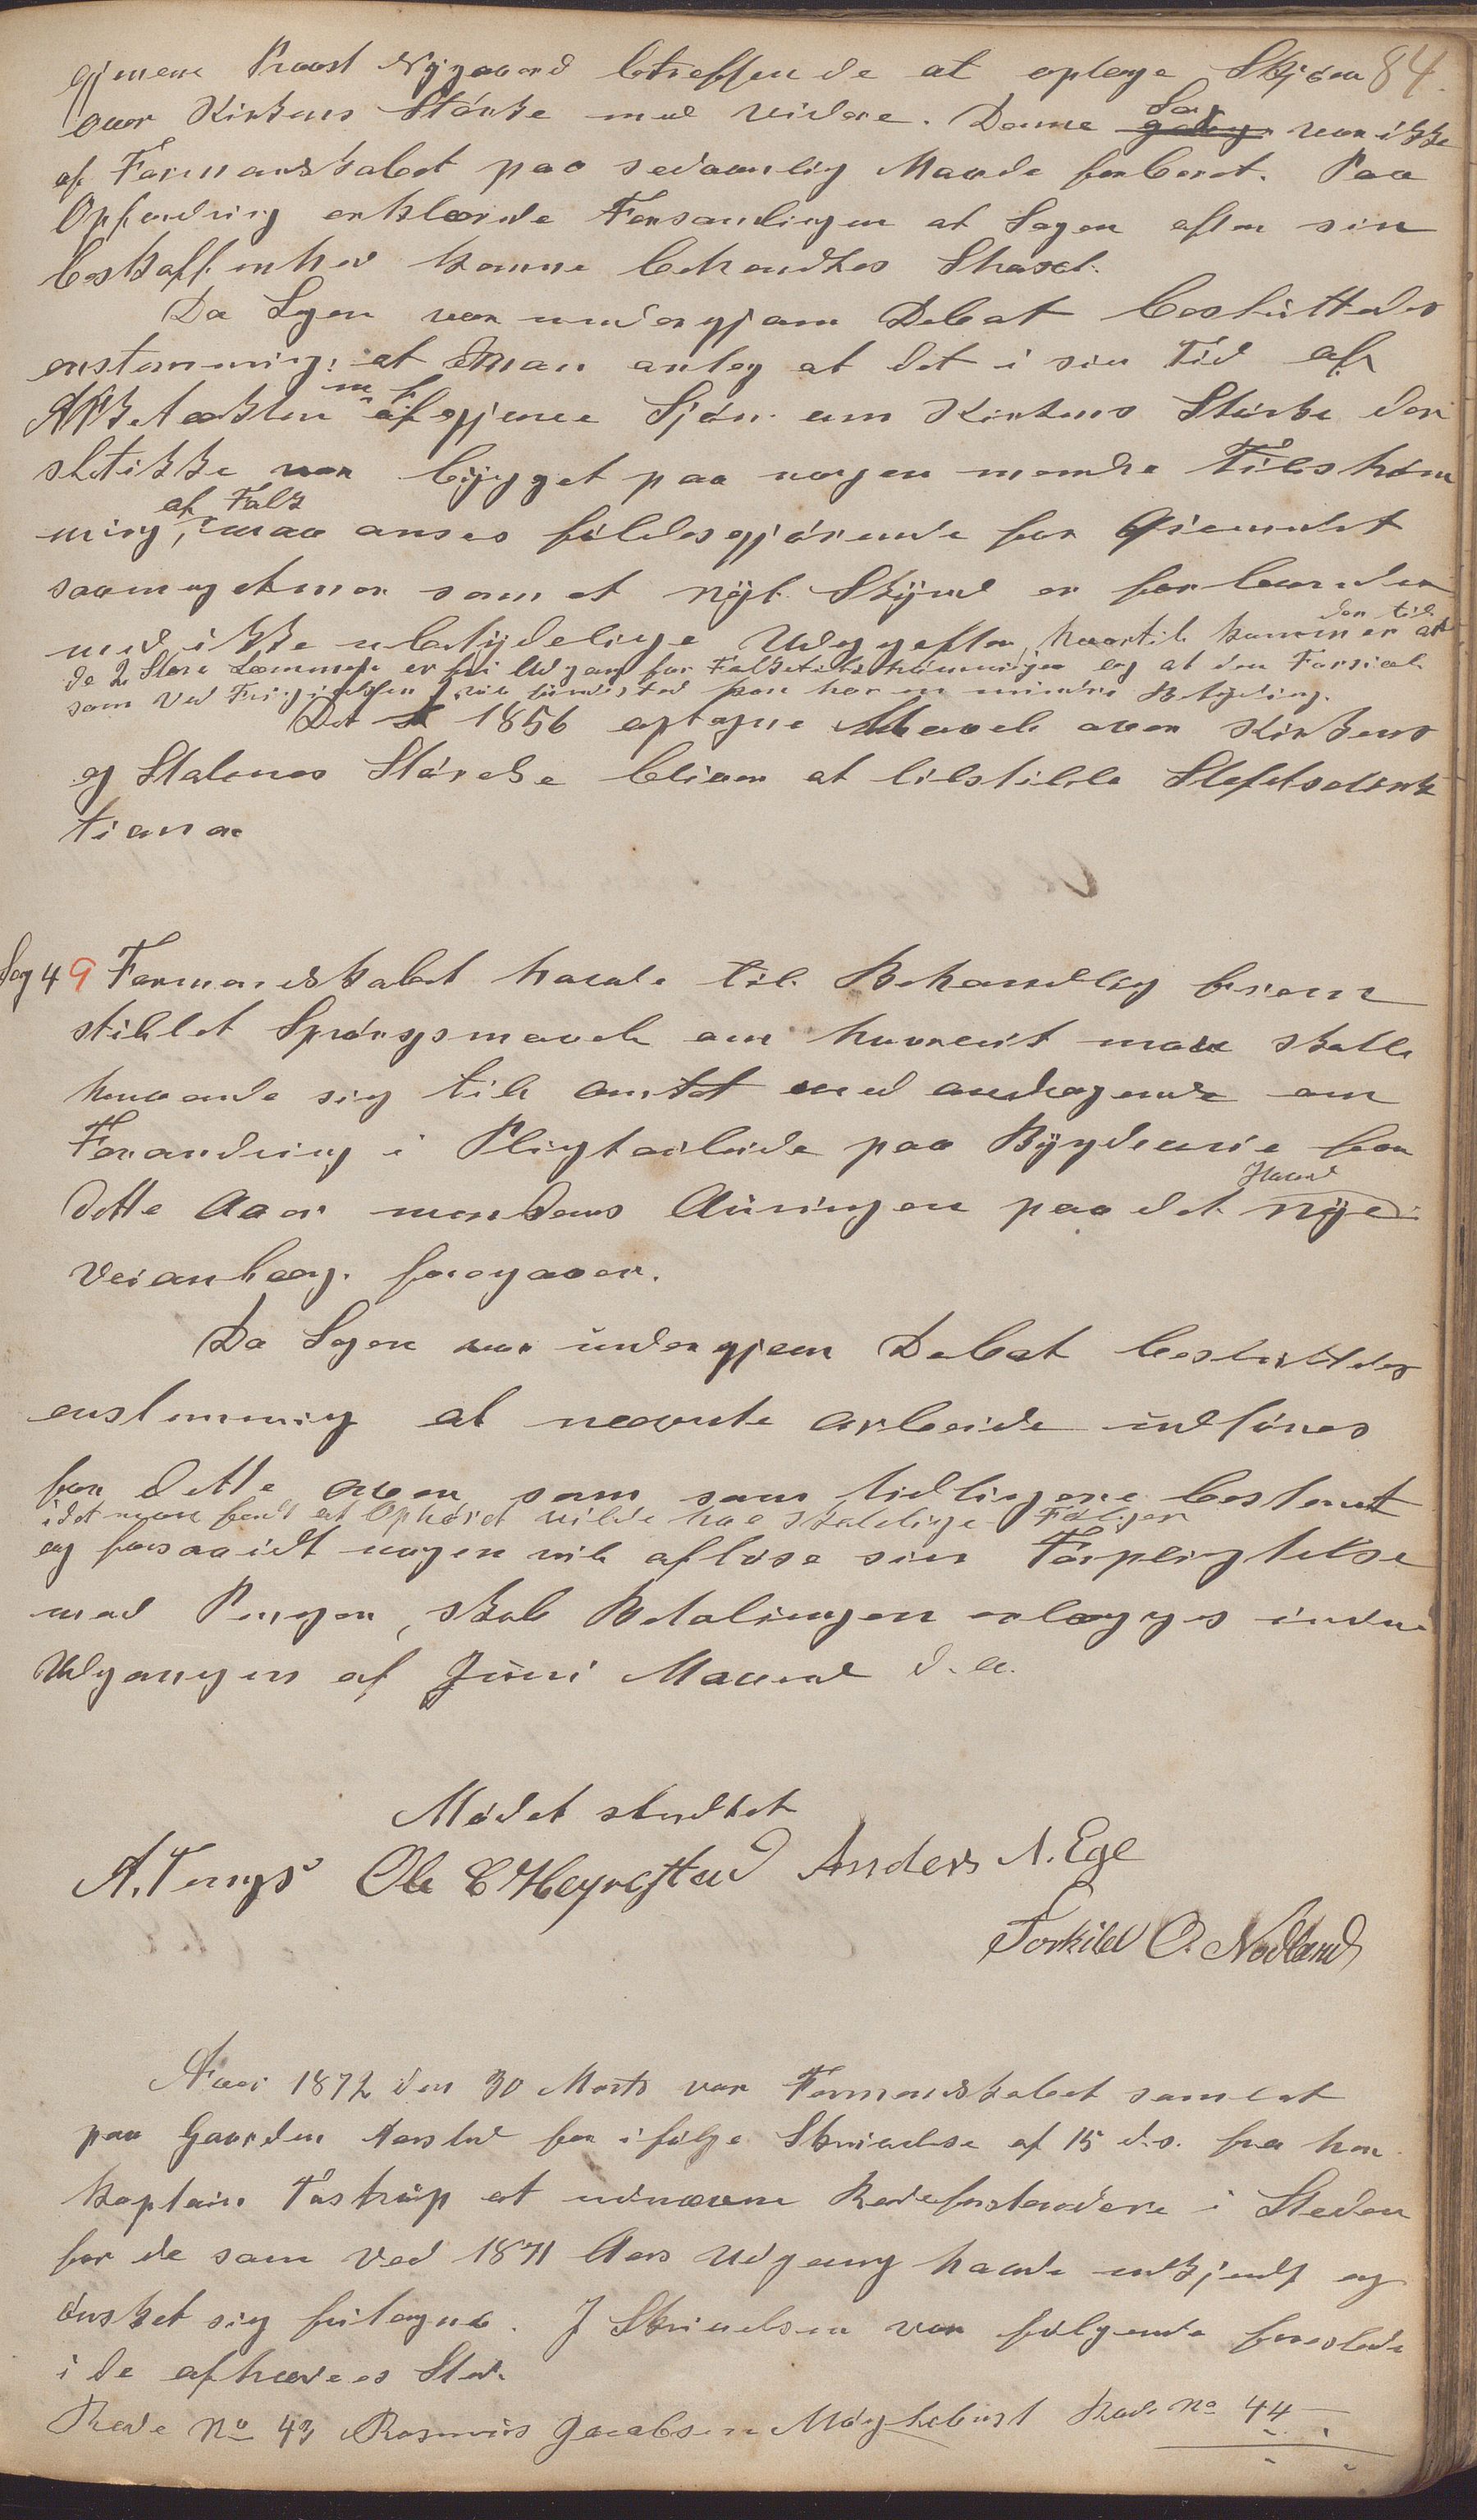 84.
gjennem Provst Nygaard betreffende at optage Skjøn
over Kirkens Størke med videre. Denne Sag var ikke
af Formandskabet paa sedvanlig Maade forberet. Paa
Opfordring erklærede Forsamlingen at Sagen efter sin
beskaffenhed kunne behandles Strax.
Da Sagen var undergjaaen Debat besluttedes
enstemmig: at Man antog at det i sin Tid af
Arketækten m. fl. afgivne Sjøn om Kirkens Størke der
sletikke var bygget paa nogen mindre Tilstrøm
ning, af Folk maa anses fyldesgjørende for Øiemedet
saameget mer som et nyt Skjøn er forbunden
med ikke ubetydelige Udgyfter, hvortil kommer at
de 2 Store Lemmer er fri Udgang for Folketilstrømningen og at den Forsiel
som ved finder sted kun har en mindre Betydning.
Det 1856 optagne Maal over Kirkens
og Stolenes Størelse bliver at tilstille Stiftsdirek
tionen.
Sag 4 9 Formandskabet havde til Behandling frem
stillet Spørgsmaal om hvorvit man skulle
henvende sig til amtet med andragende om
Forandring i Pligtarbeide paa Bygdeveie for
dette Aar mendens Auringen paa det nye
Veianlæg foregaaer.
Da Sagen var undergjaaen Debat besluttedes
enstemmig at nævnte arbeide udføres
for dette aar som som tidligere bestemt
idet man fandt at Ophøret vilde have skadelige Følger
og forsaavidt nogen vil afløse sin Forpligtelse
med Penger, skal Betalingen erlægges inden
Udgangen af Juni Maaned d. a.
Mødet sluttet
A. Tengs Ole E Høyrestad Anders N. Ege
Torkild O. Nodland
Aar 1872 den 30 Marts var Formandskabet samlet
paa Gaarden Aarstad for ifølge Skrivelse af 15 d.s. fra her
Kaptein Tostrup at udnævne Rodeforstandere i Steden
for de som ved 1871 Aars Udgang havde udtjent og
ønsket sig fritagne. I Skrivelsen var følgende foreslaade
i de afhævdes Sted.
Rode No 43 Rasmus Jacobsen Møgleb‌ust Rode No 44